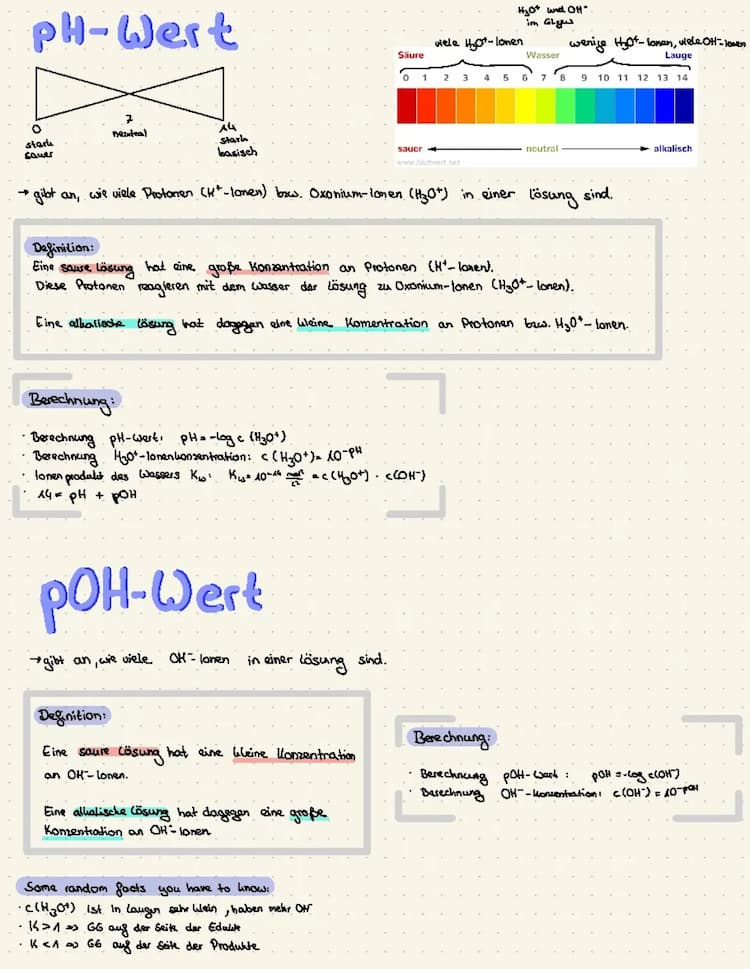 pH-Wert
H₃O⁺ und OH⁻
im Glgw
viele H₃O⁺-Ionen
wenige H₃O⁺-Ionen, viele OH⁻-Ionen
Säure Wasser Lauge
0 1 2 3 4 5 6 7 8 9 10 11 12 13 14
sauer neutral alkalisch
0
stark
sauer
7
neutral
14
stark
basisch
→ gibt an, wie viele Protonen (H⁺-Ionen) bzw. Oxonium-Ionen (H₃O⁺) in einer Lösung sind.
Definition:
Eine saure Lösung hat eine große Konzentration an Protonen (H⁺-Ionen).
Diese Protonen reagieren mit dem Wasser der Lösung zu Oxonium-Ionen (H₃O⁺-Ionen).
Eine alkalische Lösung hat dagegen eine kleine Konzentration an Protonen bzw. H₃O⁺-Ionen.
Berechnung:
· Berechnung pH-Wert: pH = -log c (H₃O⁺)
· Berechnung H₃O⁺-Ionenkonzentration: c (H₃O⁺) = 10⁻ᵖᴴ
· Ionenprodukt des Wassers Kw: Kw = 10⁻¹⁴ = c(H₃O⁺) · c(OH⁻)
· 14 = pH + pOH
pOH-Wert
→ gibt an, wie viele OH⁻-Ionen in einer Lösung sind.
Definition:
Eine saure Lösung hat eine kleine Konzentration
an OH⁻-Ionen.
Eine alkalische Lösung hat dagegen eine große
Konzentration an OH⁻-Ionen
Berechnung:
· Berechnung pOH-Wert: pOH = -log c(OH⁻)
· Berechnung OH⁻-Konzentration: c(OH⁻) = 10⁻ᵖᴼᴴ
Some random facts you have to know:
· c(H₃O⁺) ist in Laugen sehr klein, haben mehr OH⁻
· K > 1 => GG auf der Seite der Edukte
· K < 1 => GG auf der Seite der Produkte